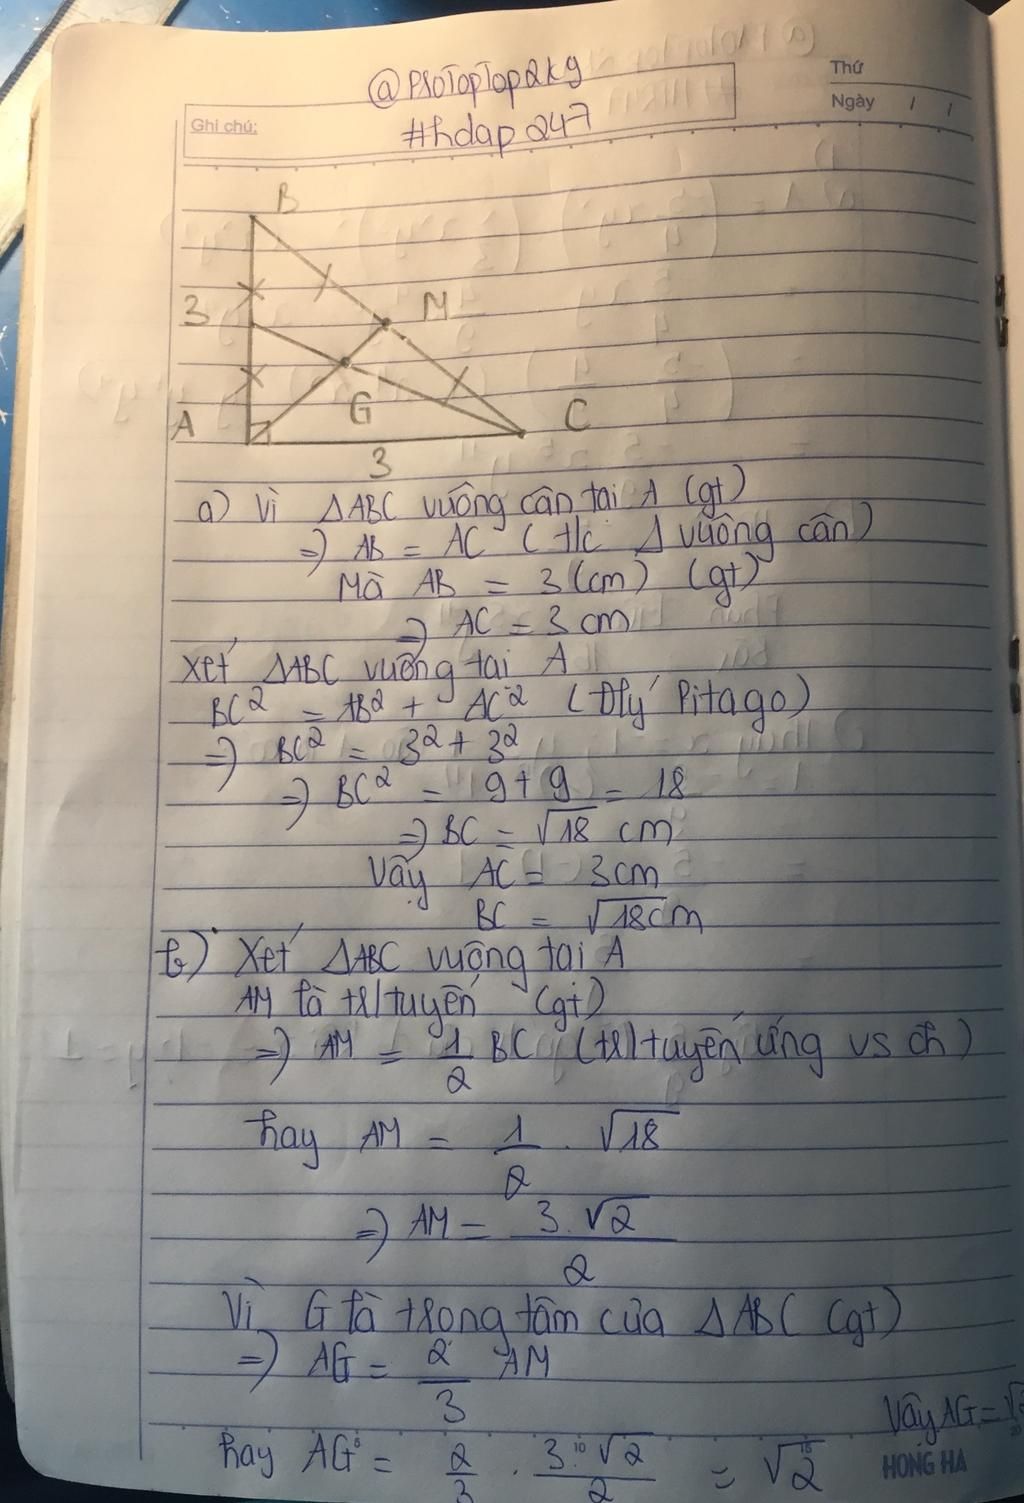 @ProTopTop2k9
#hdap247
Thứ
Ngày / /
Ghi chú:
B
3
M
G
A
C
3
a) Vì ΔABC vuông cân tại A (gt)
=> AB = AC (t/c Δ vuông cân)
Mà AB = 3 (cm) (gt)
=> AC = 3 cm
Xét ΔABC vuông tại A
BC² = AB² + AC² (Đlý Pitago)
=> BC² = 3² + 3²
=> BC² = 9 + 9 = 18
=> BC = √18 cm
Vậy AC = 3cm
BC = √18cm
b) Xét ΔABC vuông tại A
AM là tr/tuyến (gt)
=> AM = 1/2 BC (tr/tuyến ứng vs ch)
hay AM = 1/2 . √18
=> AM = 3.√2/2
Vì G là trong tâm của ΔABC (gt)
=> AG = 2/3 AM
Vậy AG = √2
hay AG = 2/3 . 3.√2/2 = √2
5 10 15 20
HONG HA